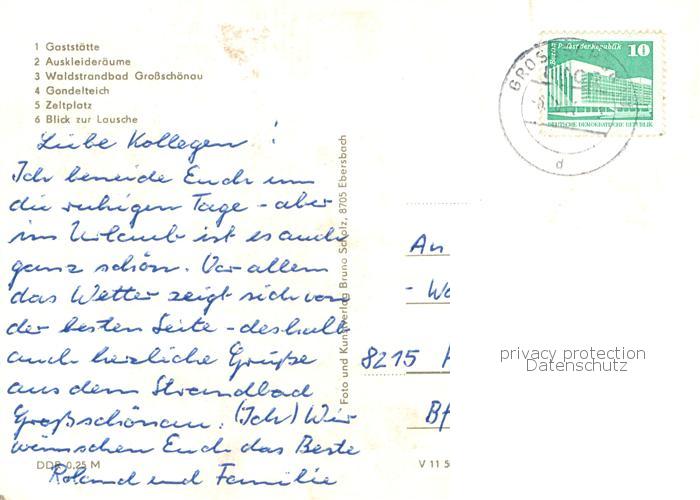 1 Gaststätte
2 Auskleideräume
3 Waldstrandbad Großschönau
4 Gondelteich
5 Zeltplatz
6 Blick zur Lausche
Liebe Kollegen!
Ich beneide Euch um
die ruhigen Tage - aber
im Urlaub ist es auch
ganz schön. Vor allem
das Wetter zeigt sich von
der besten Seite - deshalb
auch herzliche Grüße
aus dem Strandbad
Großschönau. (Ich) Wir
wünschen Euch das Beste
Roland und Familie
DDR 0,25 M
Foto und Kunstverlag Bruno Scholz, 8705 Ebersbach
V 11 5
Berlin Palast der Republik 10
DEUTSCHE DEMOKRATISCHE REPUBLIK
d
An
- Wo
8215
Bf
privacy protection
Datenschutz